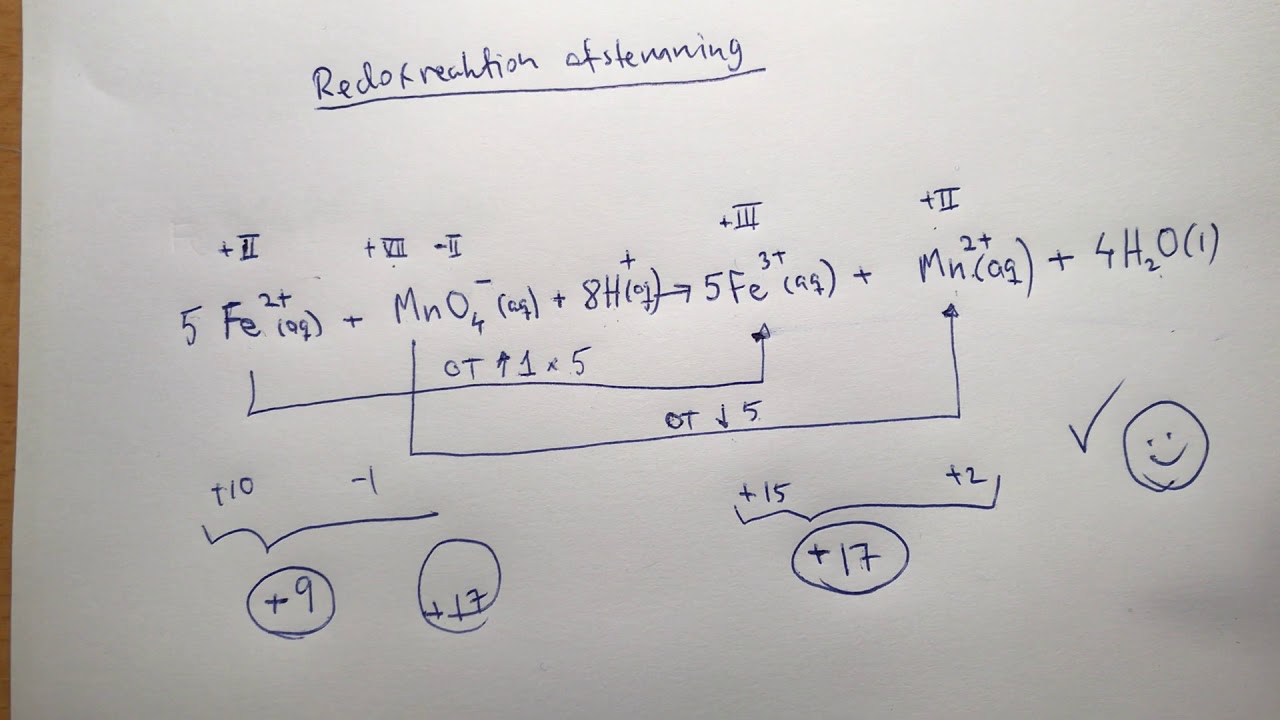 Redoxreaktion afstemning
+II +VII -II +III +II
5 Fe²⁺(aq) + MnO₄⁻(aq) + 8H⁺(aq) → 5Fe³⁺(aq) + Mn²⁺(aq) + 4H₂O(l)
OT ↑ 1 x 5
OT ↓ 5
+10 -1 +15 +2
+9 +17 +17